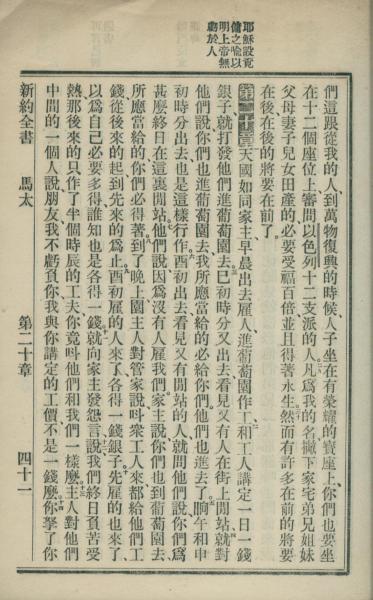 耶穌設覔
傭之喻以
明上帝無
虧於人
們這跟從我的人、到萬物復興的時候、人子坐在有榮耀的寶座上、你們也要坐
在十二個座位上、審問以色列十二支派的人、凡爲我的名撇下家宅弟兄姐妹
父母妻子兒女田產的、必要受福百倍、並且得著永生、然而有許多在前的將要
在後、在後的將要在前了。
第二十章 天國如同家主早晨出去雇人、進葡萄園作工、和工人講定一日一錢
銀子、就打發他們進葡萄園去、巳初時分又出去、看見又有人在街上閒站、就對
他們說、你們也進葡萄園去、我所應當給的必給你們、他們也進去了、晌午和申
初時分出去、也是這樣行、作酉初出去、看見又有閒站的人、就問他們說、你們爲
甚麼終日在這裏閒站、他們說、因爲沒有人雇我們、家主說、你們也到葡萄園去、
所應當給的你們必得著、到了晚上、園主人對管家說、呌衆工人來、都給他們工
錢、從後來的起、到先來的爲止、酉初雇的人來了、各得一錢銀子、先雇的也來了、
以爲自己必要多得、誰知也是各得一錢、就向家主發怨言、說、我們終日負苦受
熱、那後來的只作了半個時辰的工夫、你竟呌他們和我們一樣麼、主人對他們
中間的一個人說、朋友、我不虧負你、我與你講定的工價不是一錢麼、你拏了你
新約全書 馬太 第二十章 四十一